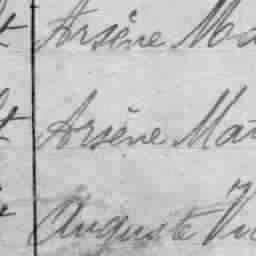 Arsène Ma
Arsène Mat
Auguste